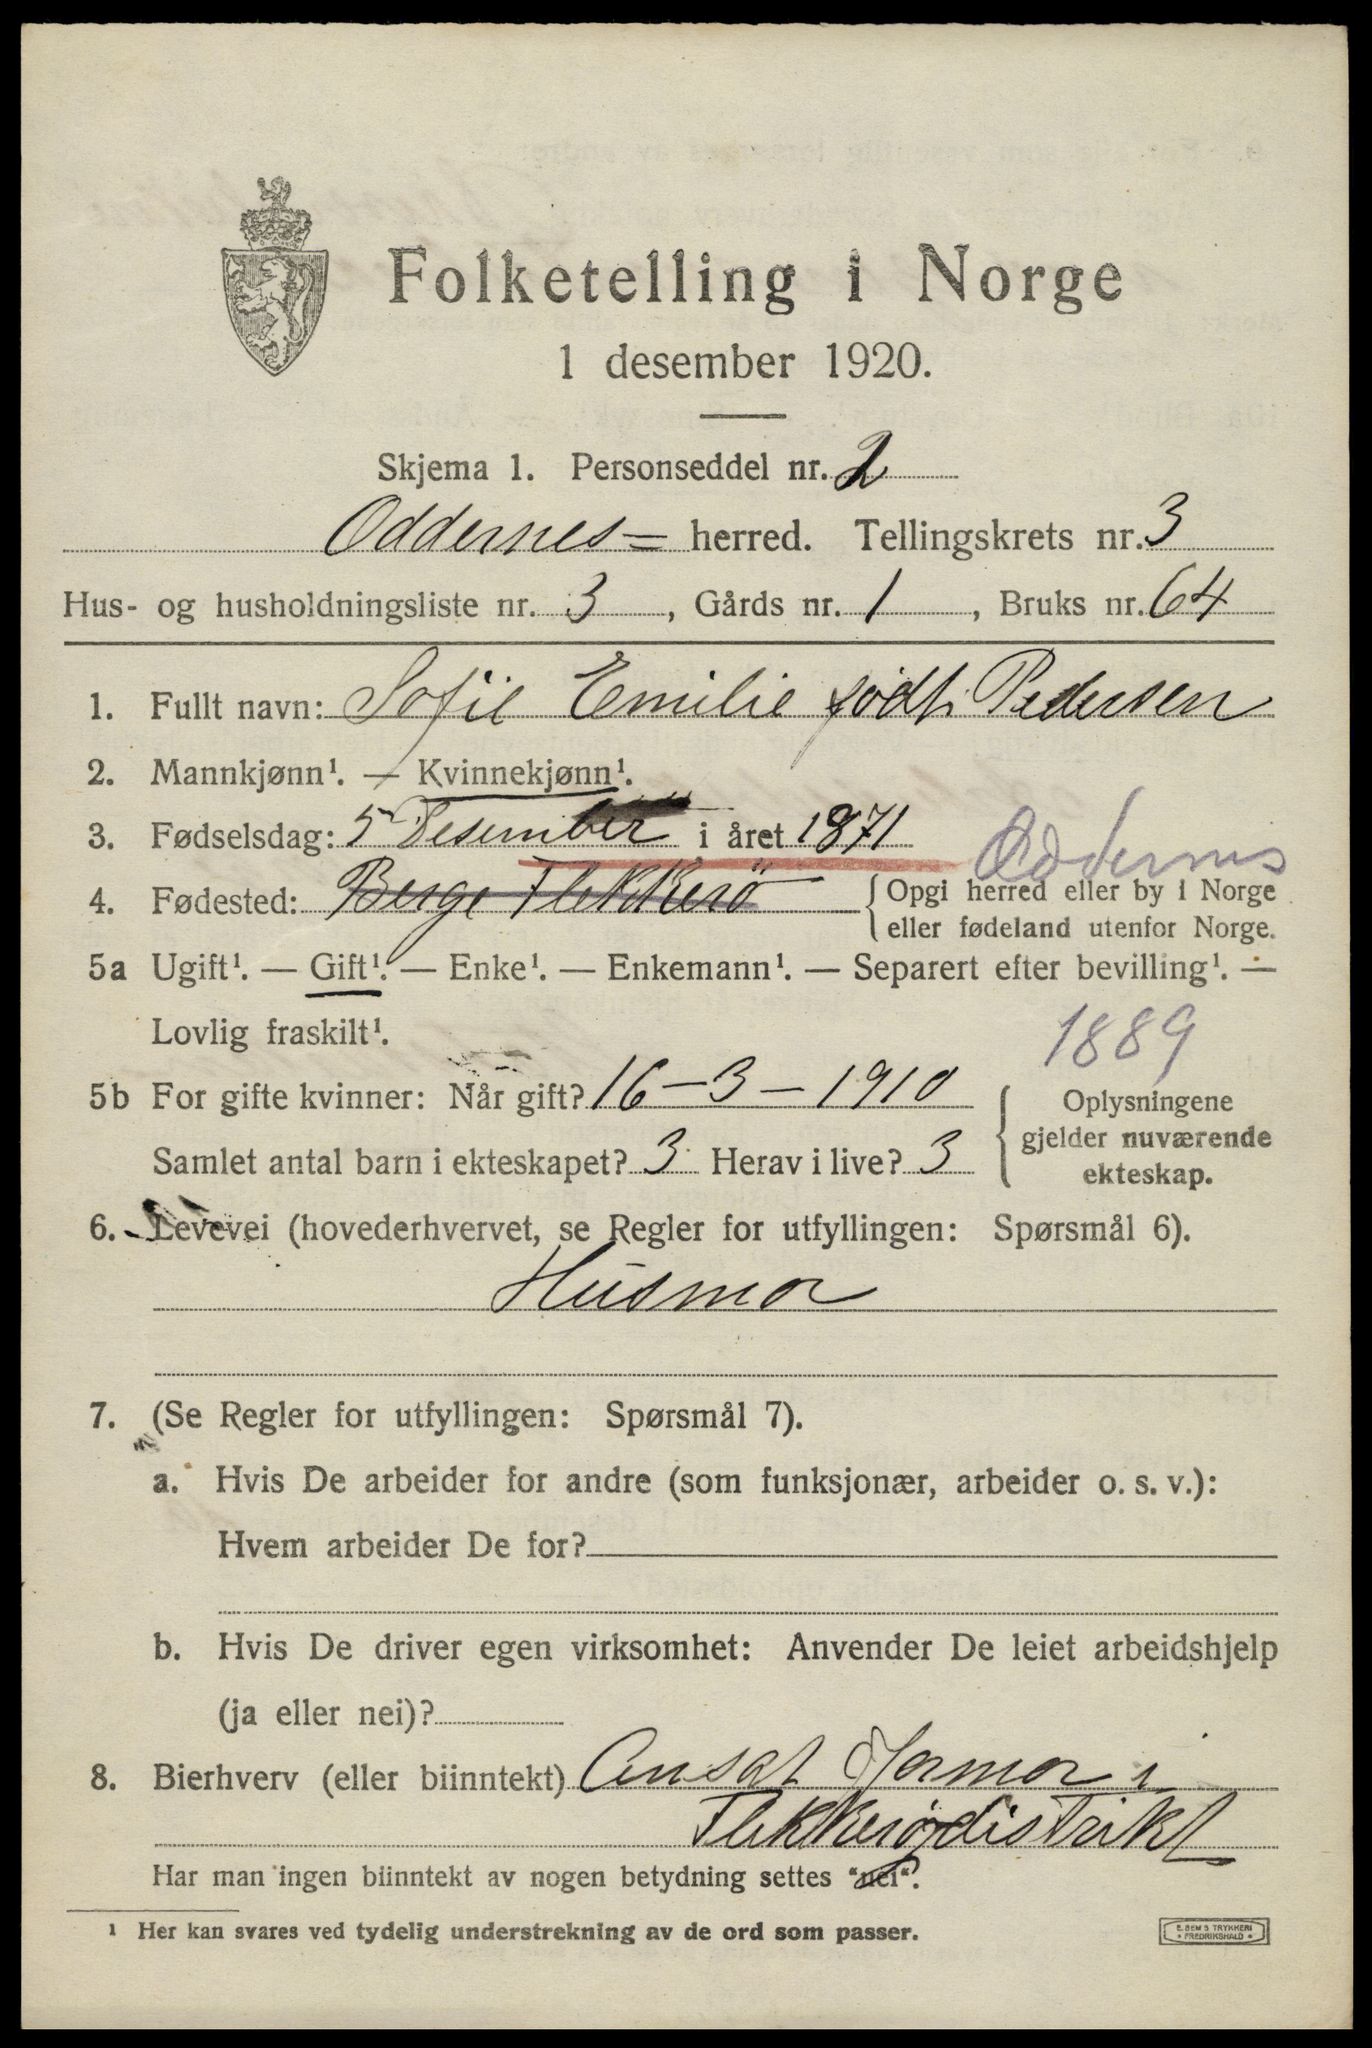 Folketelling i Norge
1 desember 1920.
Skjema 1. Personseddel nr. 2
Oddernes= herred. Tellingskrets nr. 3
Hus- og husholdningsliste nr. 3, Gårds nr. 1, Bruks nr. 64
1. Fullt navn: Sofie Emilie født Pedersen
2. Mannkjønn¹. — Kvinnekjønn¹.
3. Fødselsdag: 5 Desember i året 1871
Oddernes
4. Fødested: Berge Flekkerö { Opgi herred eller by i Norge
eller fødeland utenfor Norge.
5a Ugift¹. — Gift¹. — Enke¹. — Enkemann¹. — Separert efter bevilling¹. —
Lovlig fraskilt¹.
1889
5b For gifte kvinner: Når gift? 16-3-1910
Samlet antal barn i ekteskapet? 3 Herav i live? 3
{ Oplysningene
gjelder nuværende
ekteskap.
6. Levevei (hovederhvervet, se Regler for utfyllingen: Spørsmål 6).
Husmor
7. (Se Regler for utfyllingen: Spørsmål 7).
a. Hvis De arbeider for andre (som funksjonær, arbeider o. s. v.):
Hvem arbeider De for?
b. Hvis De driver egen virksomhet: Anvender De leiet arbeidshjelp
(ja eller nei)?
8. Bierhverv (eller biinntekt) Ansat Jormor i
Flekkerøjdistrikt
Har man ingen biinntekt av nogen betydning settes "nei".
¹ Her kan svares ved tydelig understrekning av de ord som passer.
E. SEM'S TRYKKERI
• FREDRIKSHALD •